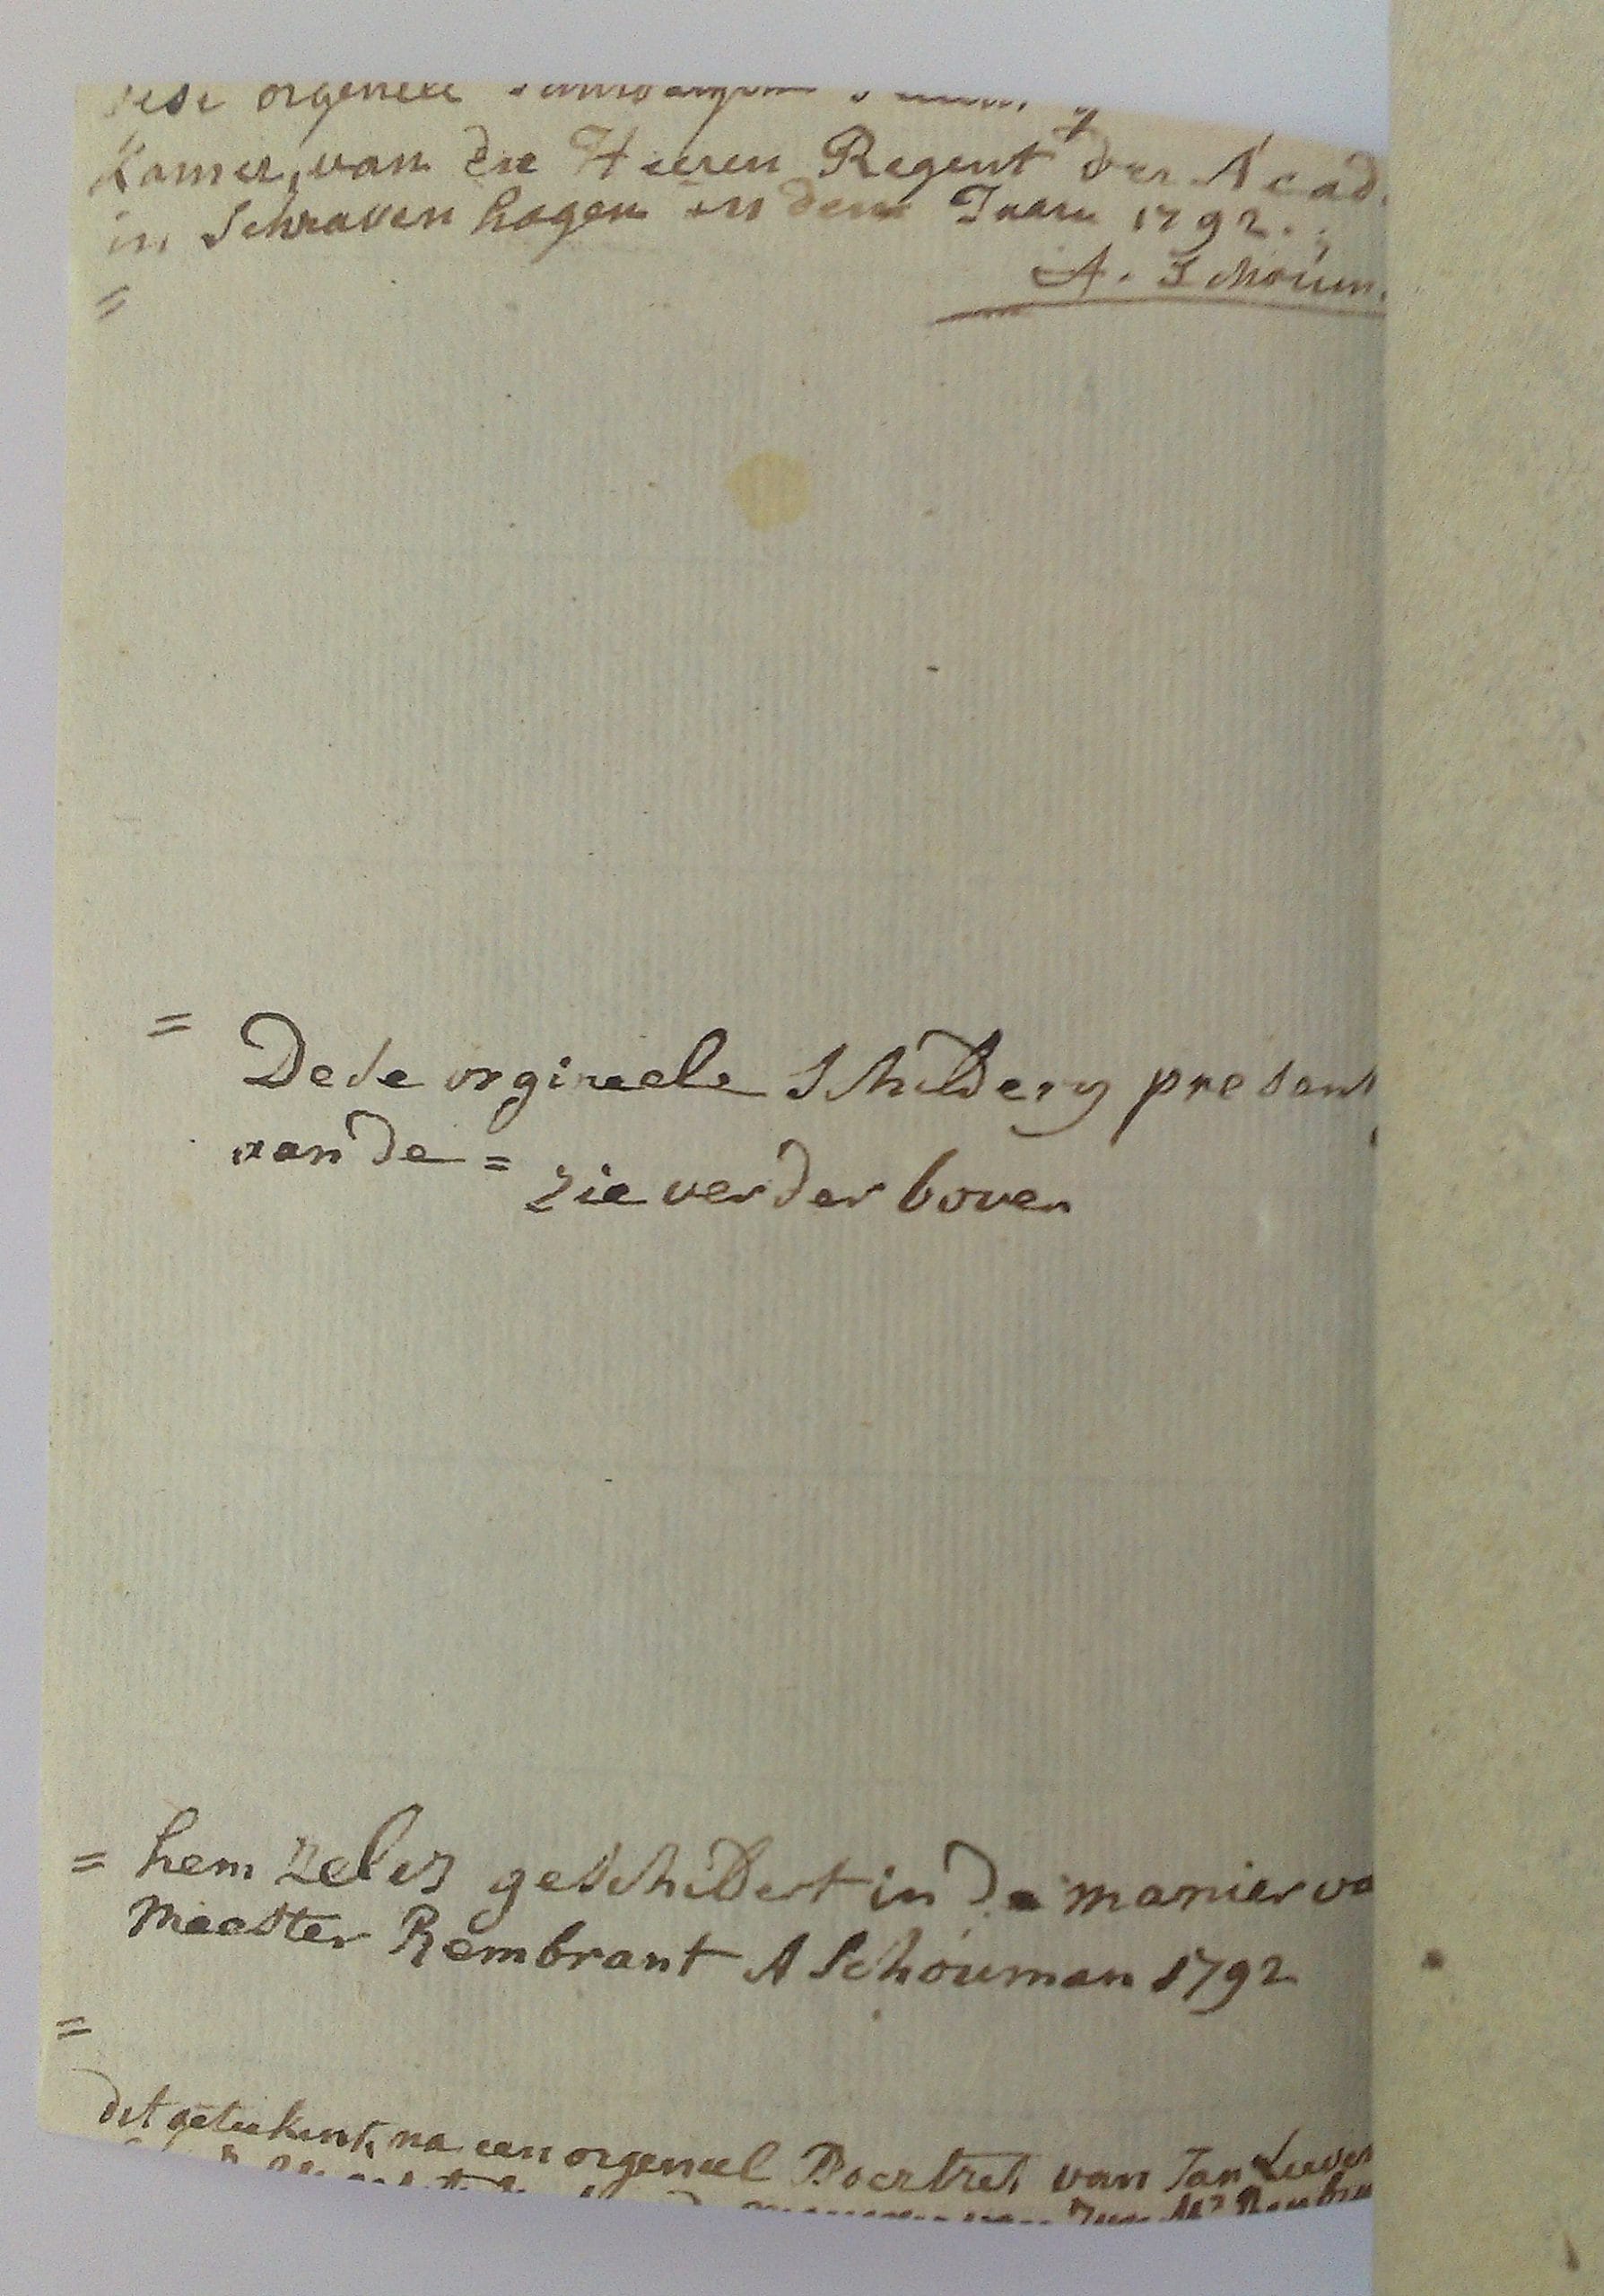 dese orgeneel
Kamer, van die Heeren Regent der Acad.
in Schraven hagen in dem Jaare 1792.
A. Schoum.
=
= Dese orgineele Schildery present
van de = zie verder boven
= hem zelvs geschildert in de manier va
Meester Rembrant A Schouman 1792
=
dit geteekent, na een orgeneel Poertret van Jan Lieven